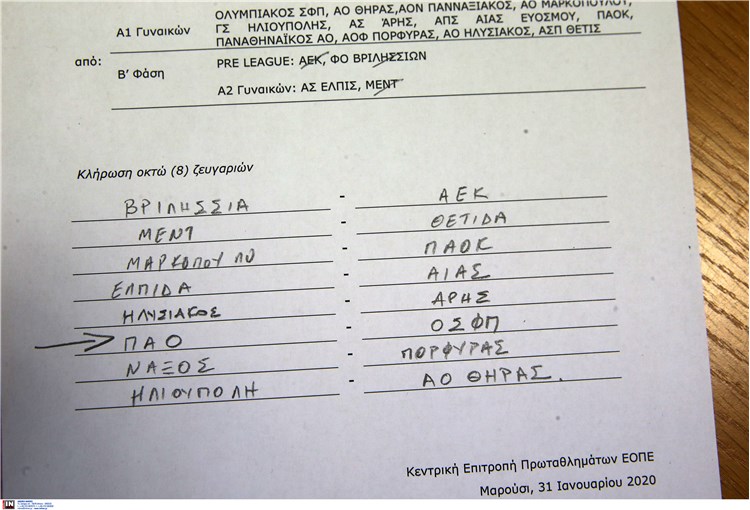 ΟΛΥΜΠΙΑΚΟΣ ΣΦΠ, ΑΟ ΘΗΡΑΣ,ΑΟΝ ΠΑΝΝΑΞΙΑΚΟΣ, ΑΟ ΜΑΡΚΟΠΟΥΛΟΥ,
Α1 Γυναικών ΓΣ ΗΛΙΟΥΠΟΛΗΣ, ΑΣ ΆΡΗΣ, ΑΠΣ ΑΙΑΣ ΕΥΟΣΜΟΥ, ΠΑΟΚ,
ΠΑΝΑΘΗΝΑΪΚΟΣ ΑΟ, ΑΟΦ ΠΟΡΦΥΡΑΣ, ΑΟ ΗΛΥΣΙΑΚΟΣ, ΑΣΠ ΘΕΤΙΣ
από:
Β' Φάση PRE LEAGUE: ΑΕΚ, ΦΟ ΒΡΙΛΗΣΣΙΩΝ
Α2 Γυναικών: ΑΣ ΕΛΠΙΣ, ΜΕΝΤ
Κλήρωση οκτώ (8) ζευγαριών
ΒΡΙΛΗΣΣΙΑ - ΑΕΚ
ΜΕΝΤ - ΘΕΤΙΔΑ
ΜΑΡΚΟΠΟΥΛΟ - ΠΑΟΚ
ΕΛΠΙΔΑ - ΑΙΑΣ
ΗΛΥΣΙΑΚΟΣ - ΑΡΗΣ
ΠΑΟ - ΟΣΦΠ
ΝΑΞΟΣ - ΠΟΡΦΥΡΑΣ
ΗΛΙΟΥΠΟΛΗ - ΑΟ ΘΗΡΑΣ.
Κεντρική Επιτροπή Πρωταθλημάτων ΕΟΠΕ
Μαρούσι, 31 Ιανουαρίου 2020
IN